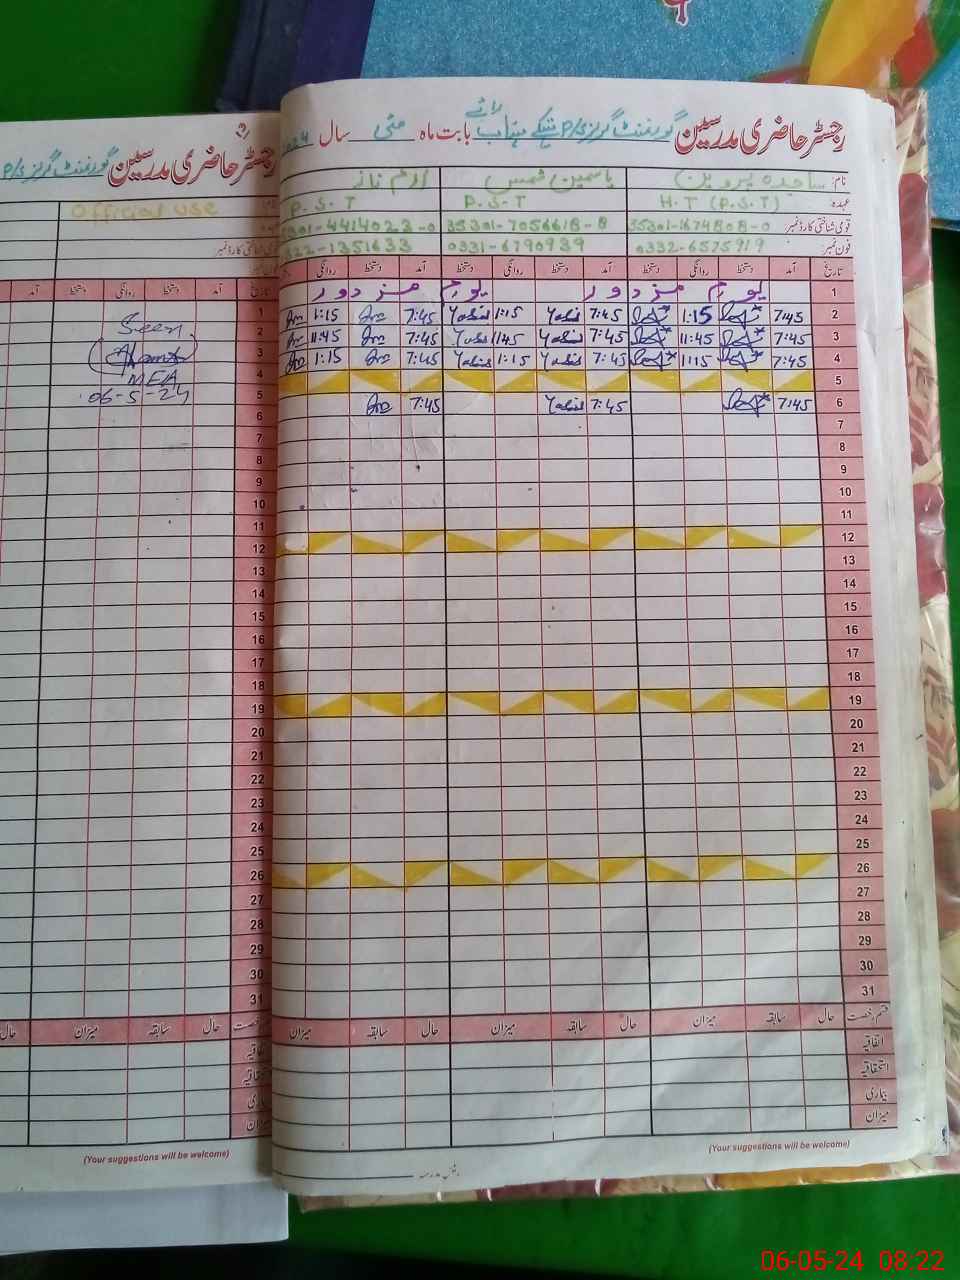 رجسٹر حاضری مدرسین گورنمنٹ گرلز P/S بابت ماہ مئی سال
نام: ساجدہ پروین یاسمین شمس ارم ناز
عہدہ: H.T (P.S.T) P.S.T P.S.T
قومی شناختی کارڈ نمبر 35301-1674808-0 35301-7056618-8 5301-4414023-0
فون نمبر: 0332-6575919 0331-6790939 322-1351633
تاریخ آمد دستخط روانگی دستخط آمد دستخط روانگی دستخط آمد دستخط روانگی
1 یوم مزدور یوم مزدور
2 7:45 1:15 7:45 1:15 7:45 1:15
3 7:45 11:45 7:45 11:45 7:45 11:45
4 7:45 1:15 7:45 1:15 7:45 1:15
5
6 7:45 7:45 7:45
7
8
9
10
11
12
13
14
15
16
17
18
19
20
21
22
23
24
25
26
27
28
29
30
31
قسم رخصت حال سابقہ میزان حال سابقہ میزان حال سابقہ میزان
اتفاقیہ
استحقاقیہ
بیماری
میزان
(Your suggestions will be welcome)
رجسٹر حاضری مدرسین گورنمنٹ گرلز P/S
Official use
قومی شناختی کارڈ نمبر
فون نمبر
تاریخ آمد دستخط روانگی دستخط آمد
1
2 Seen
3
4 MEA
5 06-5-24
6
7
8
9
10
11
12
13
14
15
16
17
18
19
20
21
22
23
24
25
26
27
28
29
30
31
رخصت حال سابقہ میزان حال
میزان
(Your suggestions will be welcome)
06-05-24 08:22